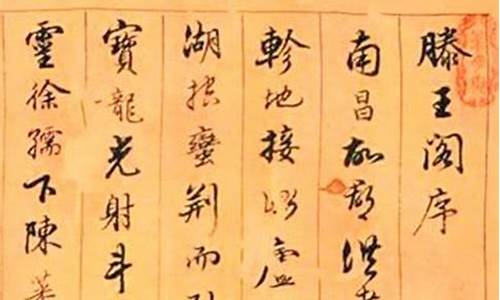 滕王閣序
南昌故郡洪
軫地接衡廬
湖控蠻荊而引
寶龍光射斗
靈徐孺下陳蕃